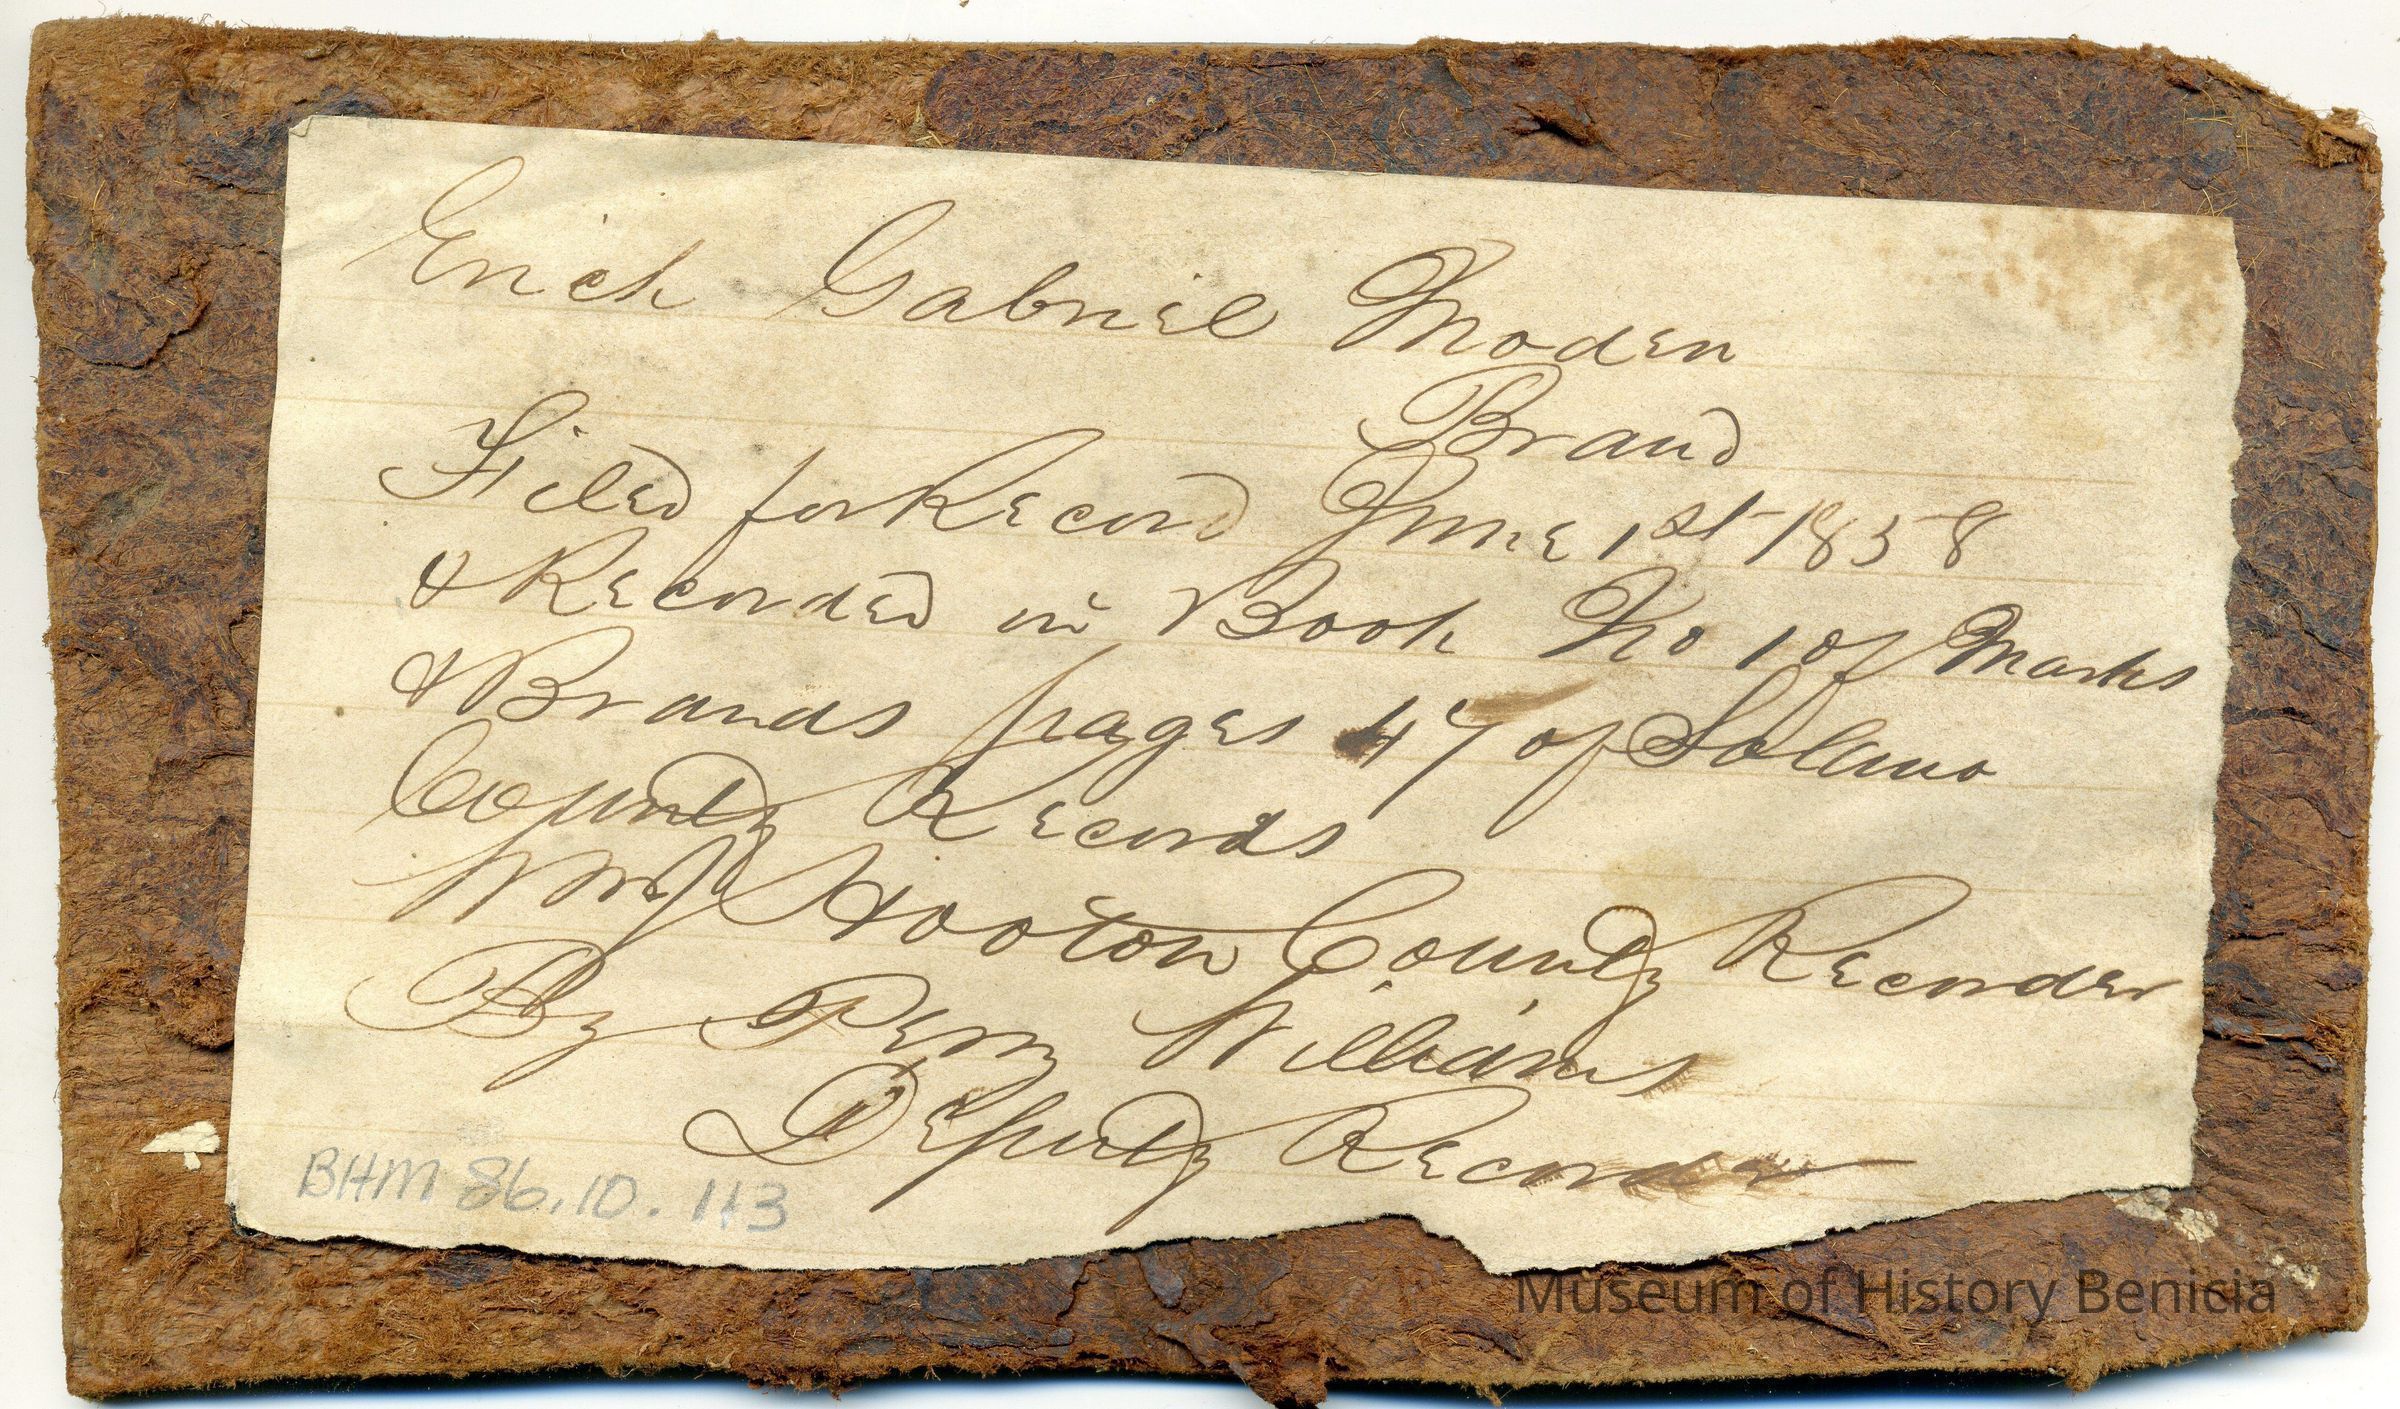 Erich Gabriel Moden
Brand
Filed for Record June 1st 1858
& Recorded in Book No 1 of Marks
& Brands pages 47 of Solano
County Records
Wm J Hooton County Recorder
By Perry Williams
Deputy Recorder
BHM 86.10.113
Museum of History Benicia